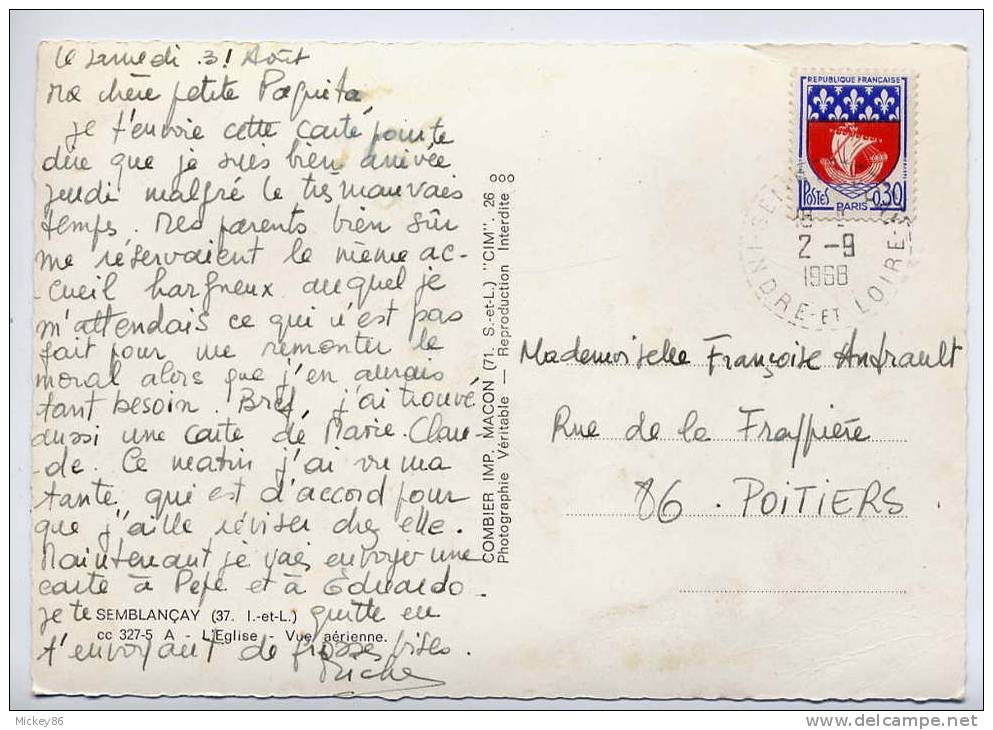 le samedi 31 Août
Ma chère petite Paquita,
je t'envoie cette carte pour te
dire que je suis bien arrivée
jeudi malgré le très mauvais
temps. Mes parents bien sûr
me réservaient le même ac-
-cueil hargneux auquel je
m'attendais ce qui n'est pas
fait pour me remonter le
moral alors que j'en aurais
tant besoin. Bref, j'ai trouvé
aussi une carte de Marie-Clau-
-de. Ce matin j'ai vu ma
tante, qui est d'accord pour
que j'aille réviser chez elle.
Maintenant je vais envoyer une
carte à Pepe et à Eduardo.
je te quitte en
t'envoyant de grosses bises.
SEMBLANÇAY (37. I.-et-L.)
cc 327-5 A - L'Eglise - Vue aérienne.
COMBIER IMP. MACON (71. S.-et-L.) "CIM" 26
Photographie Véritable — Reproduction Interdite
REPUBLIQUE FRANÇAISE
POSTES PARIS 0.30
2 -9
1968
INDRE-ET-LOIRE
Mademoiselle Françoise Andrault
Rue de la
86. POITIERS
Mickey86
www.delcampe.net